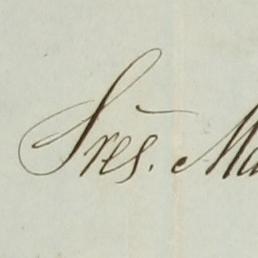 Sres. Ma